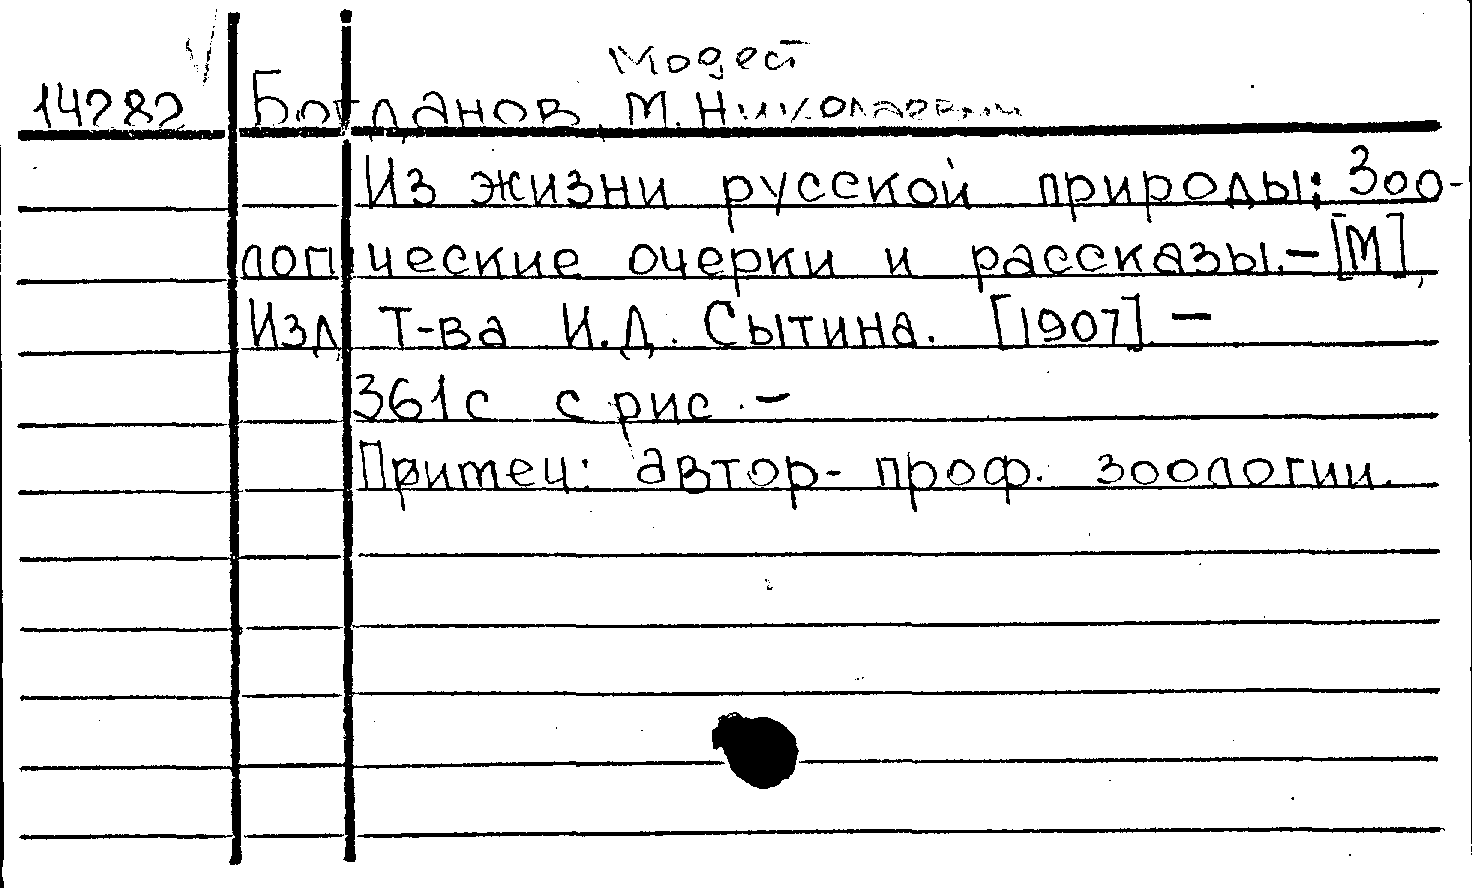 Модест
14282 Богданов, М. Николаевич
Из жизни русской природы: Зоо-
логические очерки и рассказы.-[М],
Изд Т-ва И.Д. Сытина. [1907] -
361с с рис. -
Притеч: автор- проф. зоологии.